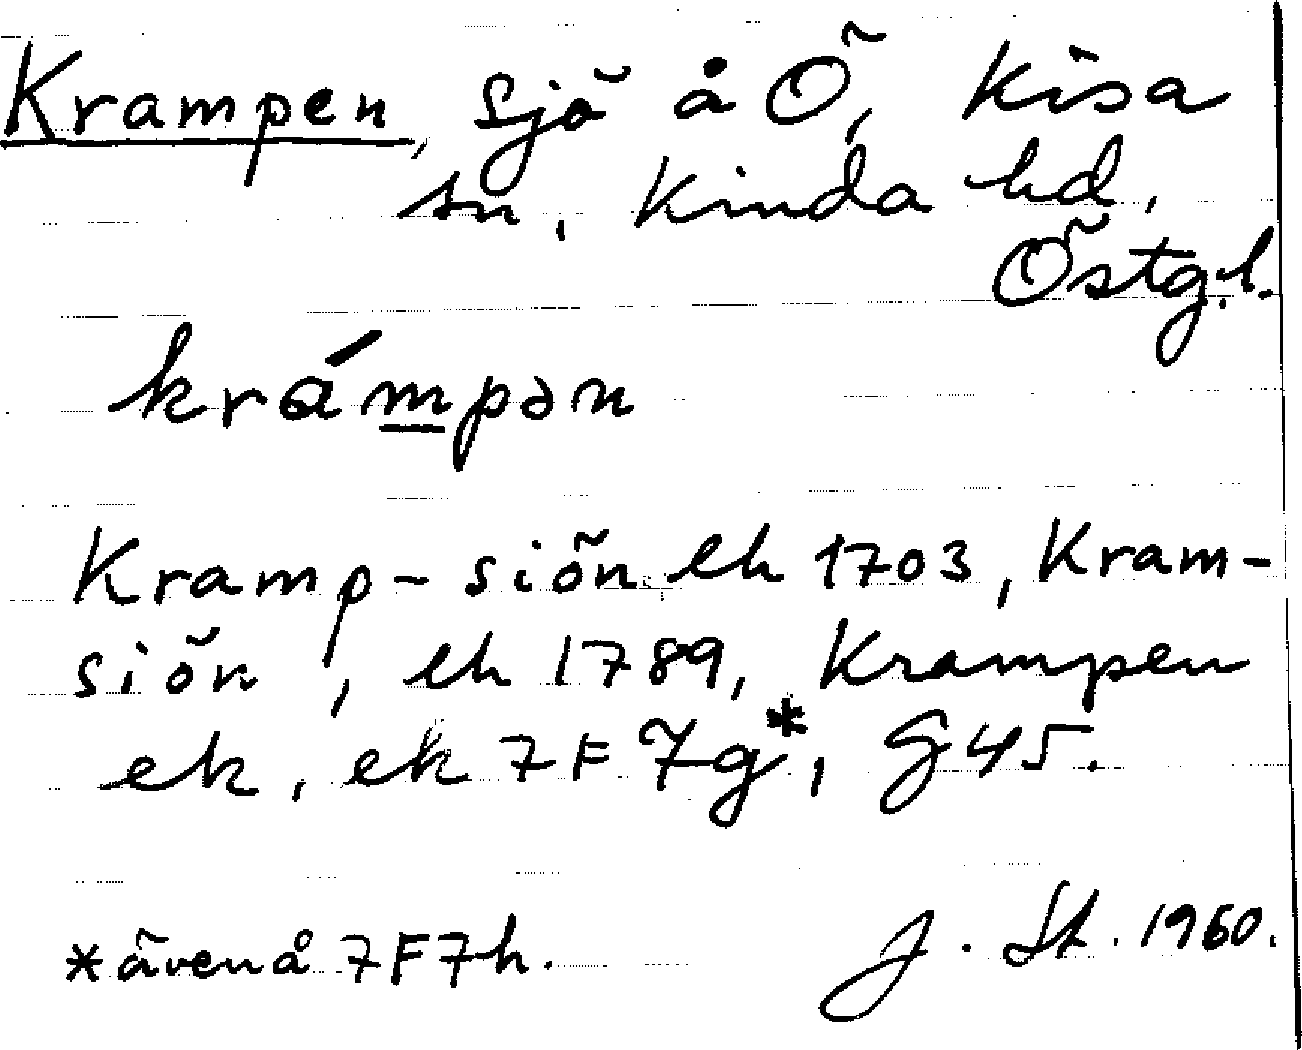 Krampen, sjö å Ö, Kisa
sn, Kinda hd,
Östg.l.
krámpən
Kramp-siön lh 1703, Kram-
siön, lh 1789, Krampen
ek, ek 7F 7g*, G45.
*även å 7F7h.
J. St. 1960.